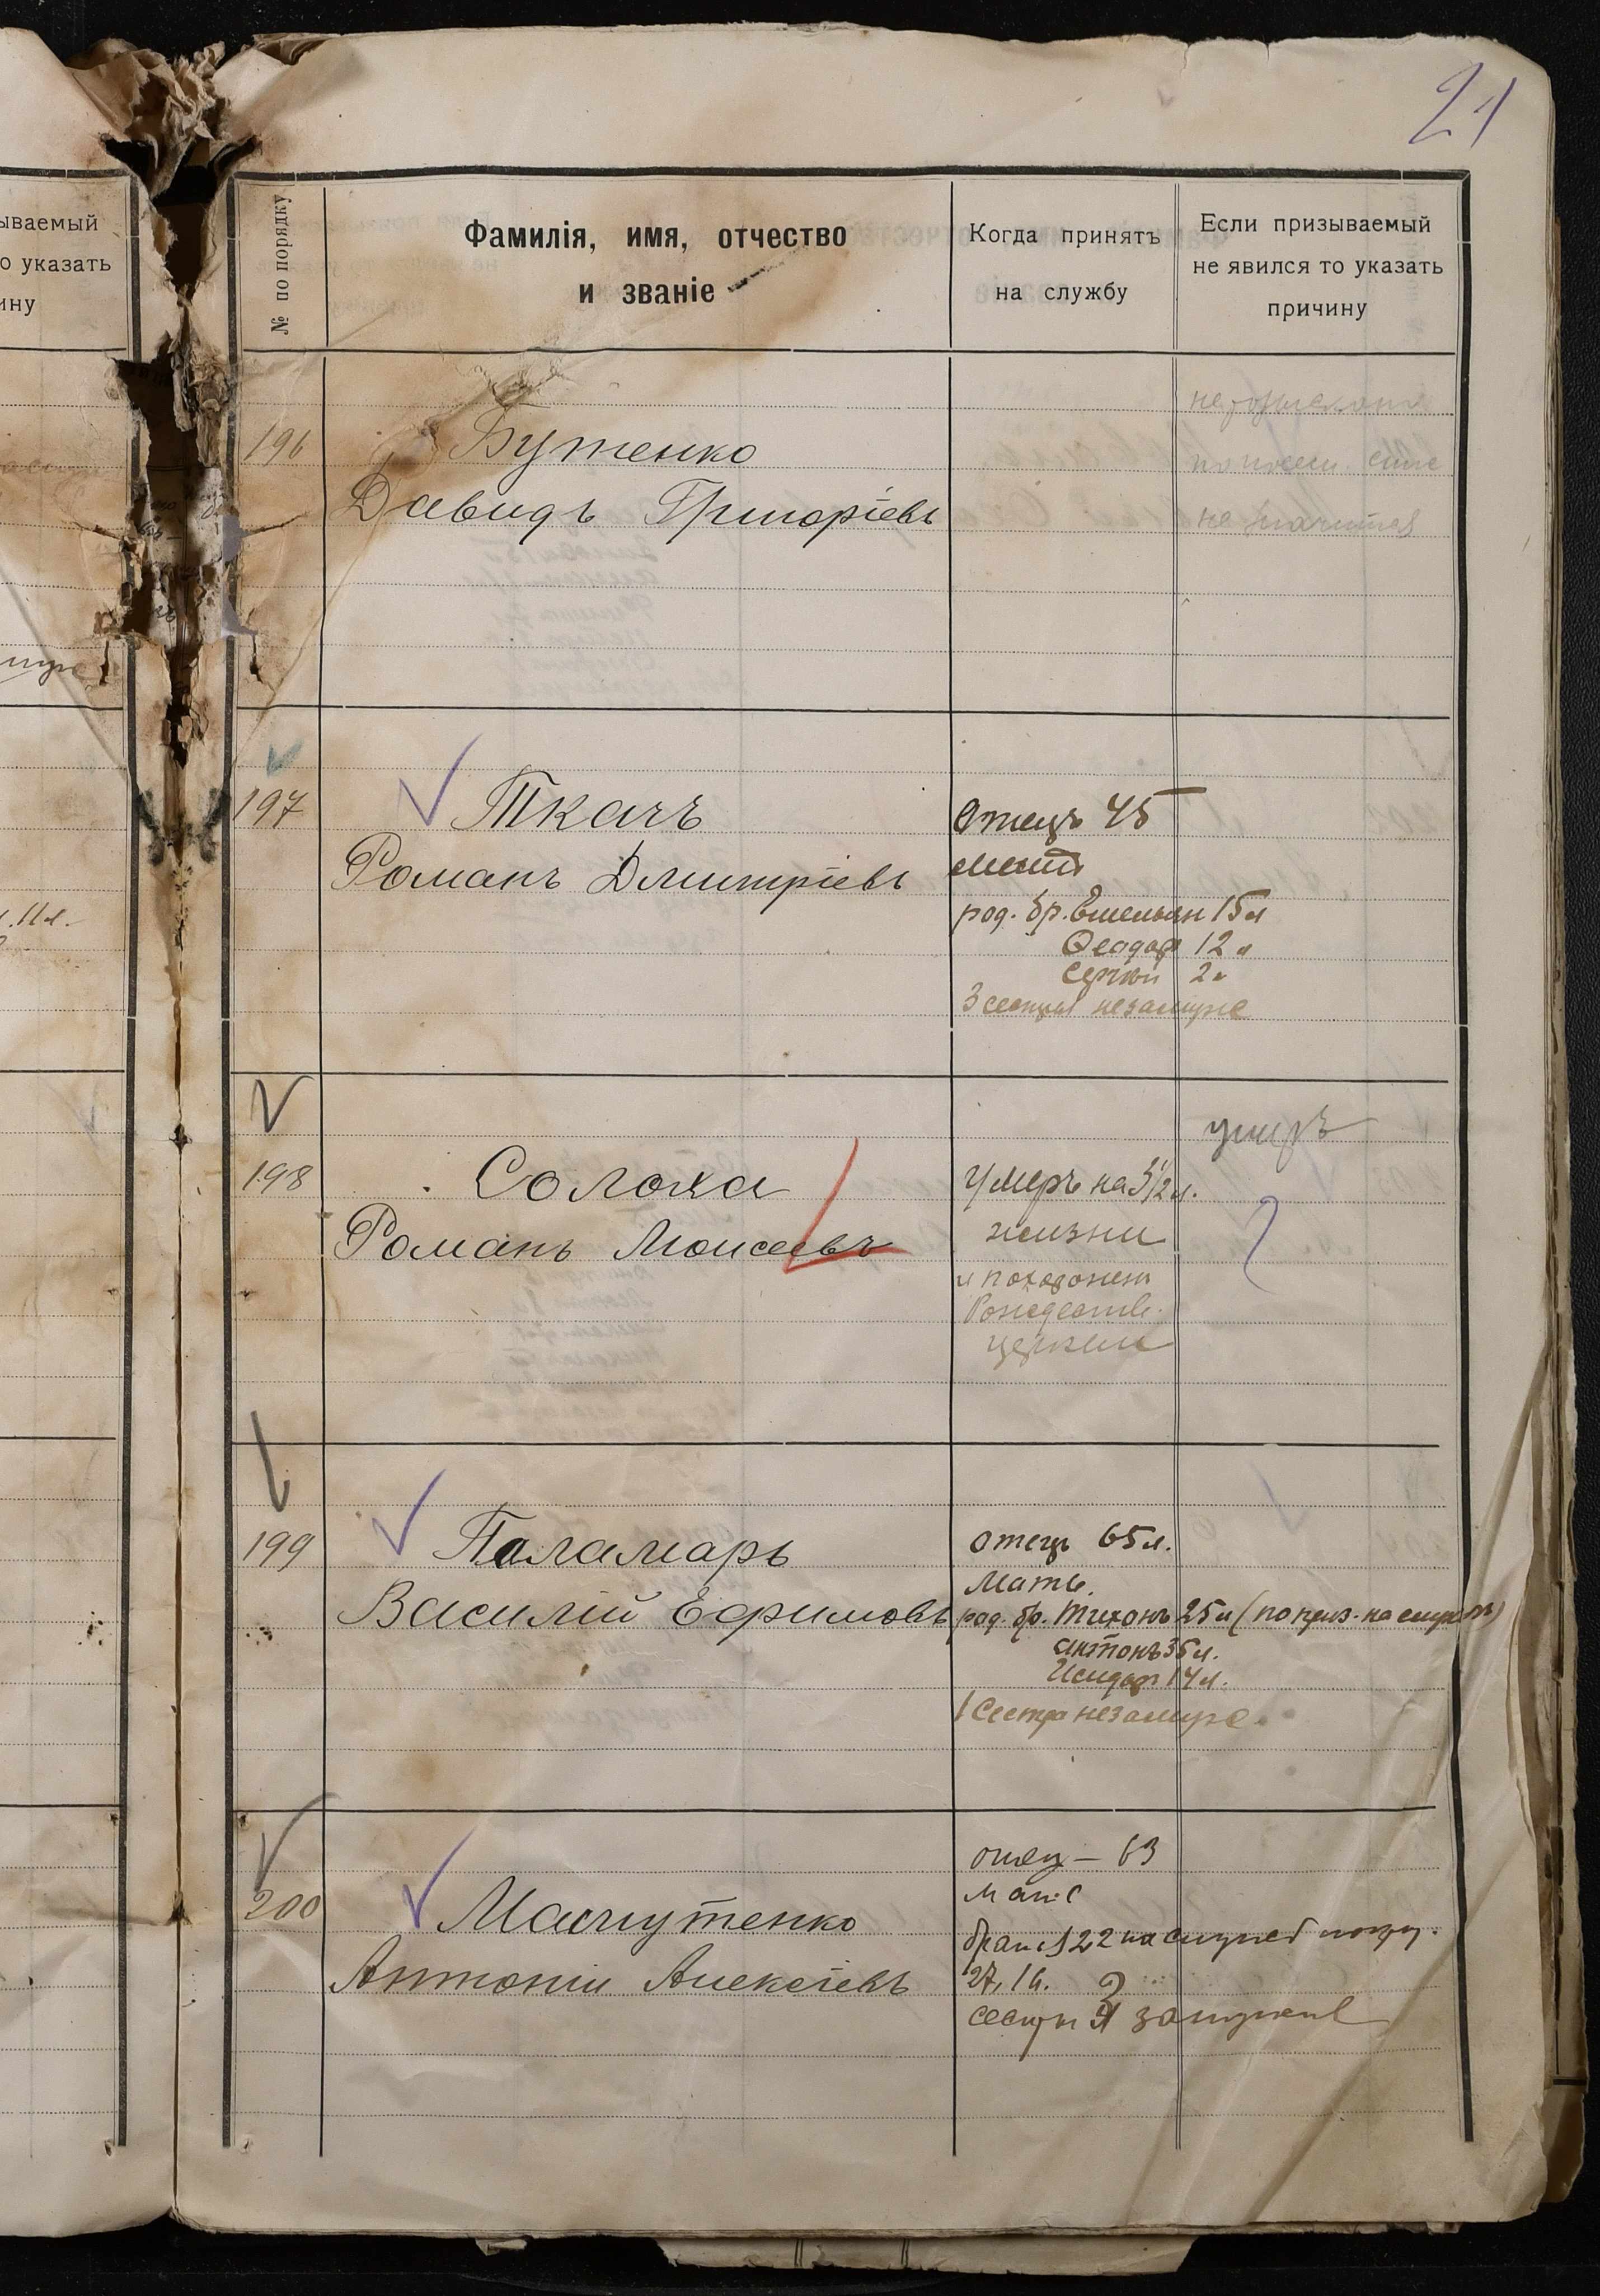 21
ываемый
о указать
ину
№ по порядку
Фамилія, имя, отчество
и званіе
Когда принятъ
на службу
Если призываемый
не явился то указать
причину
196
Бутенко
Давидъ Григоріевъ
по посем. списк
не значится
197
Ткачъ
Романъ Дмитріевъ
Отецъ 45
мать
род. бр. Емельян 15 л
Феодор 12 л
Сергѣй 2 л
3 сестры незамуже
11 л.
198
Солоха
Романъ Моисеевъ
умеръ на 3 1/2 л.
жизни
и похоронен
Рождеств.
церкви
умеръ
199
Паламарь
Василій Ефимовъ
отецъ 65 л.
Мать.
род. бр. Тихонъ 25 л (по приз. на служб)
Антонъ 35 л.
Исидор 14 л.
1 Сестра незамуже.
200
Мачутенко
Антоній Алексіевъ
отец — 63
мать
братья 22 на службѣ
27, 16.
сестры 3 замужем